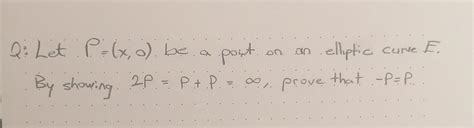 Q: Let P=(x,0) be a point on an elliptic curve E.
By showing 2P = P+P = ∞, prove that -P=P.